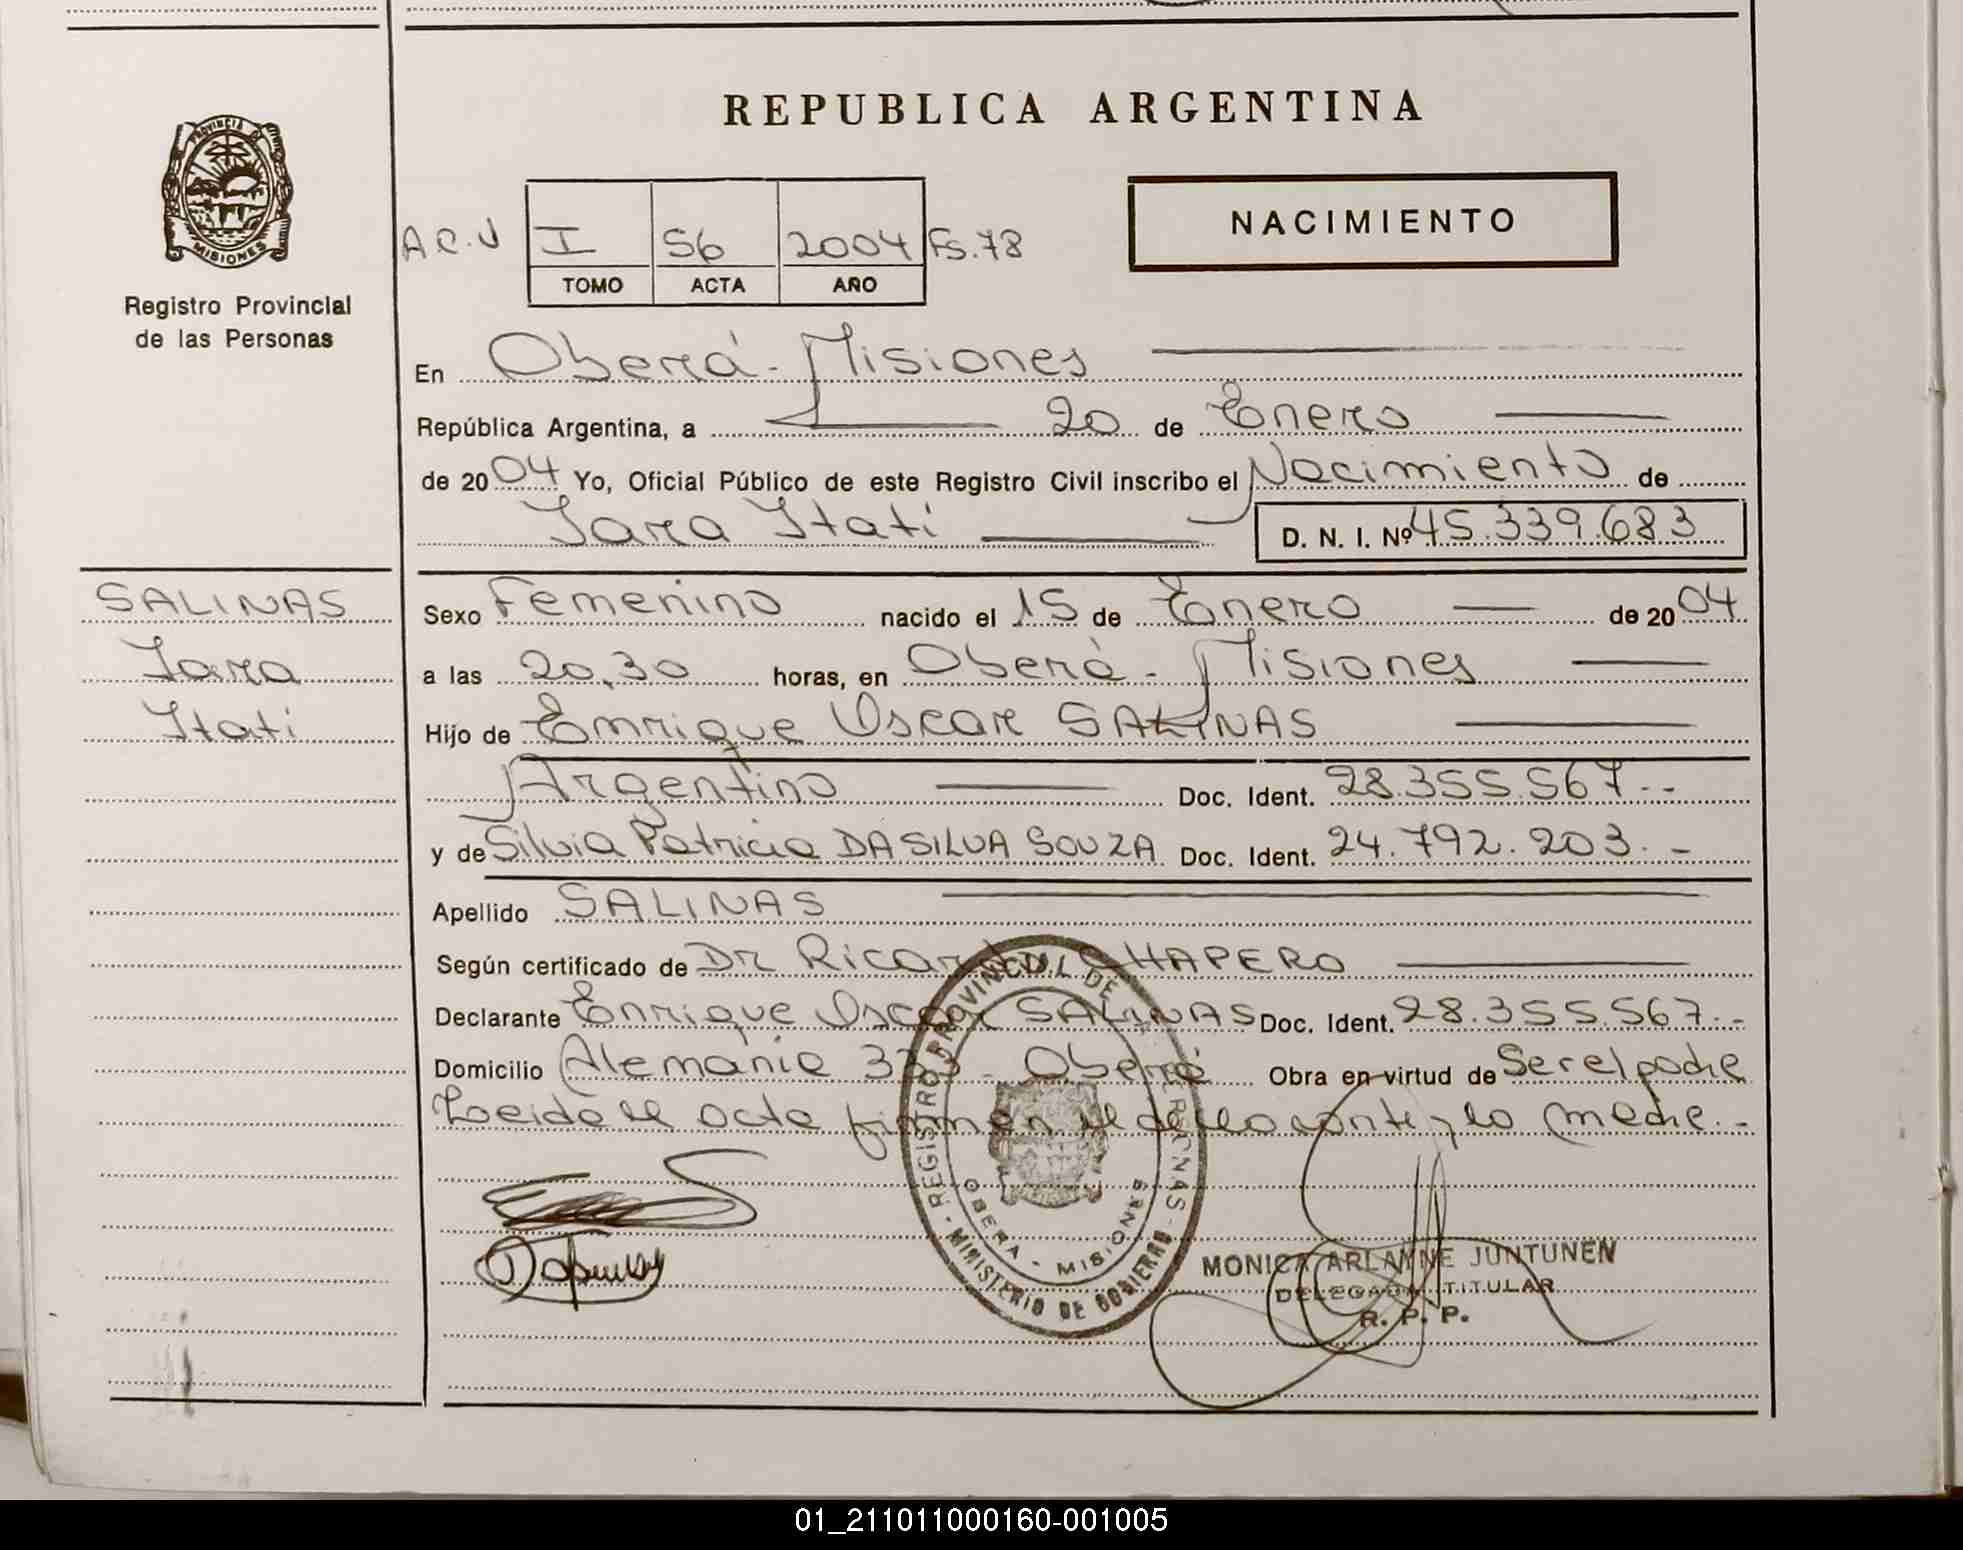 REPUBLICA ARGENTINA
PROVINCIA DE
MISIONES
Registro Provincial
de las Personas
A C. U I S6 2004 Fs. 78
TOMO ACTA AÑO
NACIMIENTO
En Oberá - Misiones
República Argentina, a 20 de Enero
de 2004 Yo, Oficial Público de este Registro Civil inscribo el Nacimiento de
Iara Itatí D. N. I. Nº 45.339.683
SALINAS
Iara
Itatí
Sexo Femenino nacido el 15 de Enero de 2004
a las 20,30 horas, en Oberá - Misiones
Hijo de Enrrique Oscar SALINAS
Argentino Doc. Ident. 28.355.567.--
y de Silvia Patricia DA SILVA SOUZA Doc. Ident. 24.792.203.-
Apellido SALINAS
Según certificado de Dr Ricardo CHAPERO
Declarante Enrrique Oscar SALINAS Doc. Ident. 28.355.567.-
Domicilio Alemania 333 - Oberá Obra en virtud de Ser el padre
Leida el acta firman el declarante y la madre.-
REGISTRO PROVINCIAL DE LAS PERSONAS - MINISTERIO DE GOBIERNO
OBERA - MISIONES
MONICA ARLAYNE JUNTUNEN
DELEGADA TITULAR
R. P. P.
01_211011000160-001005